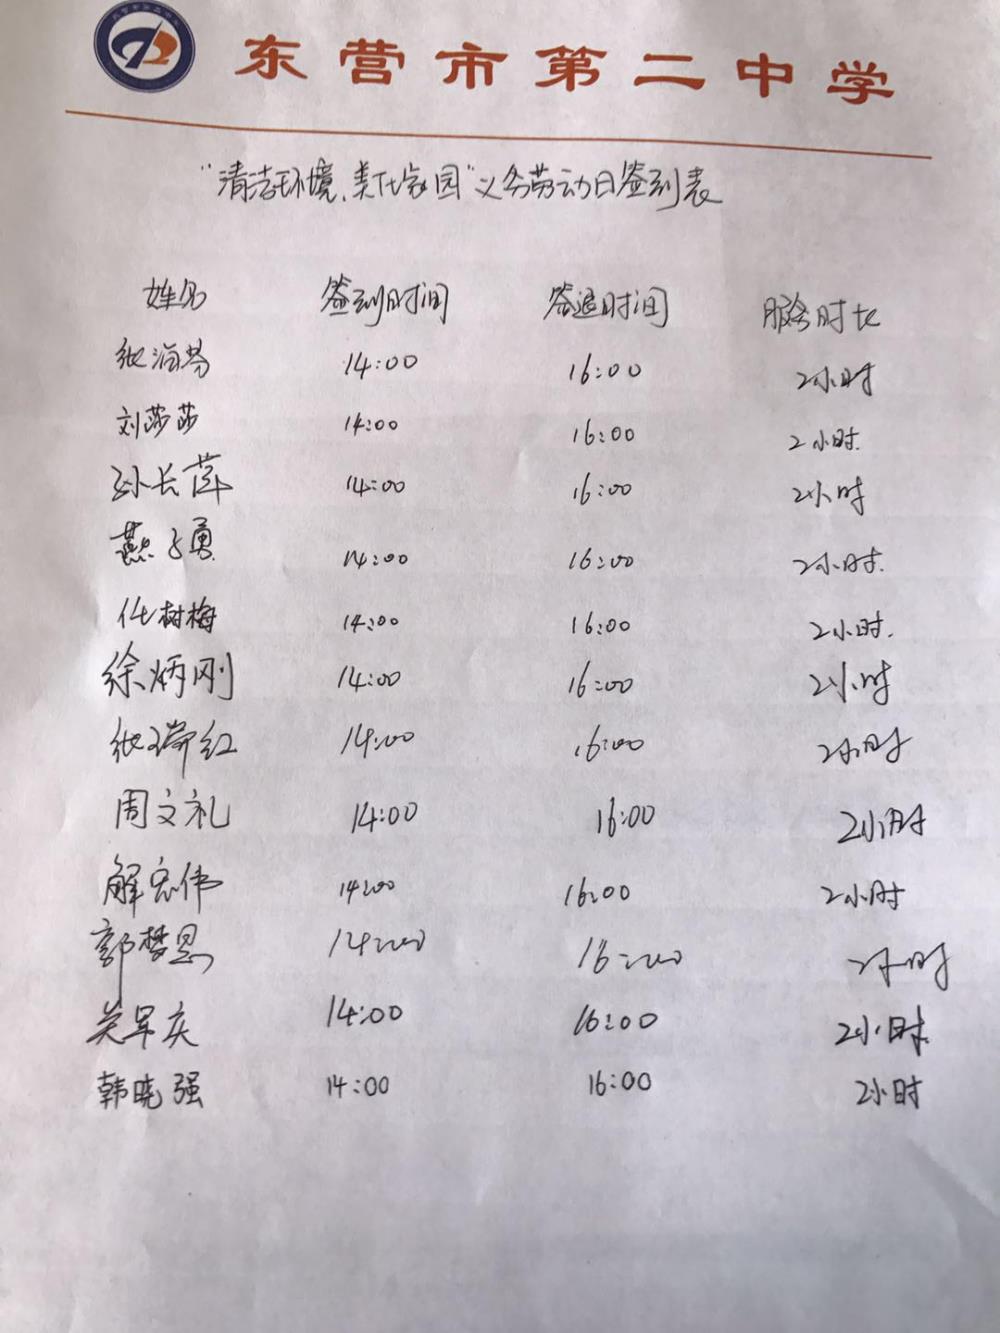 东营市第二中学
“清洁环境、美化家园”义务劳动日签到表
姓名 签到时间 签退时间 服务时长
张海芳 14:00 16:00 2小时
刘莎莎 14:00 16:00 2小时.
孙长萍 14:00 16:00 2小时
燕子勇 14:00 16:00 2小时.
任树梅 14:00 16:00 2小时.
徐炳刚 14:00 16:00 2小时
张瑞红 14:00 16:00 2小时
周文礼 14:00 16:00 2小时
解宏伟 14:00 16:00 2小时
郭梦恩 14:00 16:00 2小时
关军庆 14:00 16:00 2小时
韩晓强 14:00 16:00 2小时